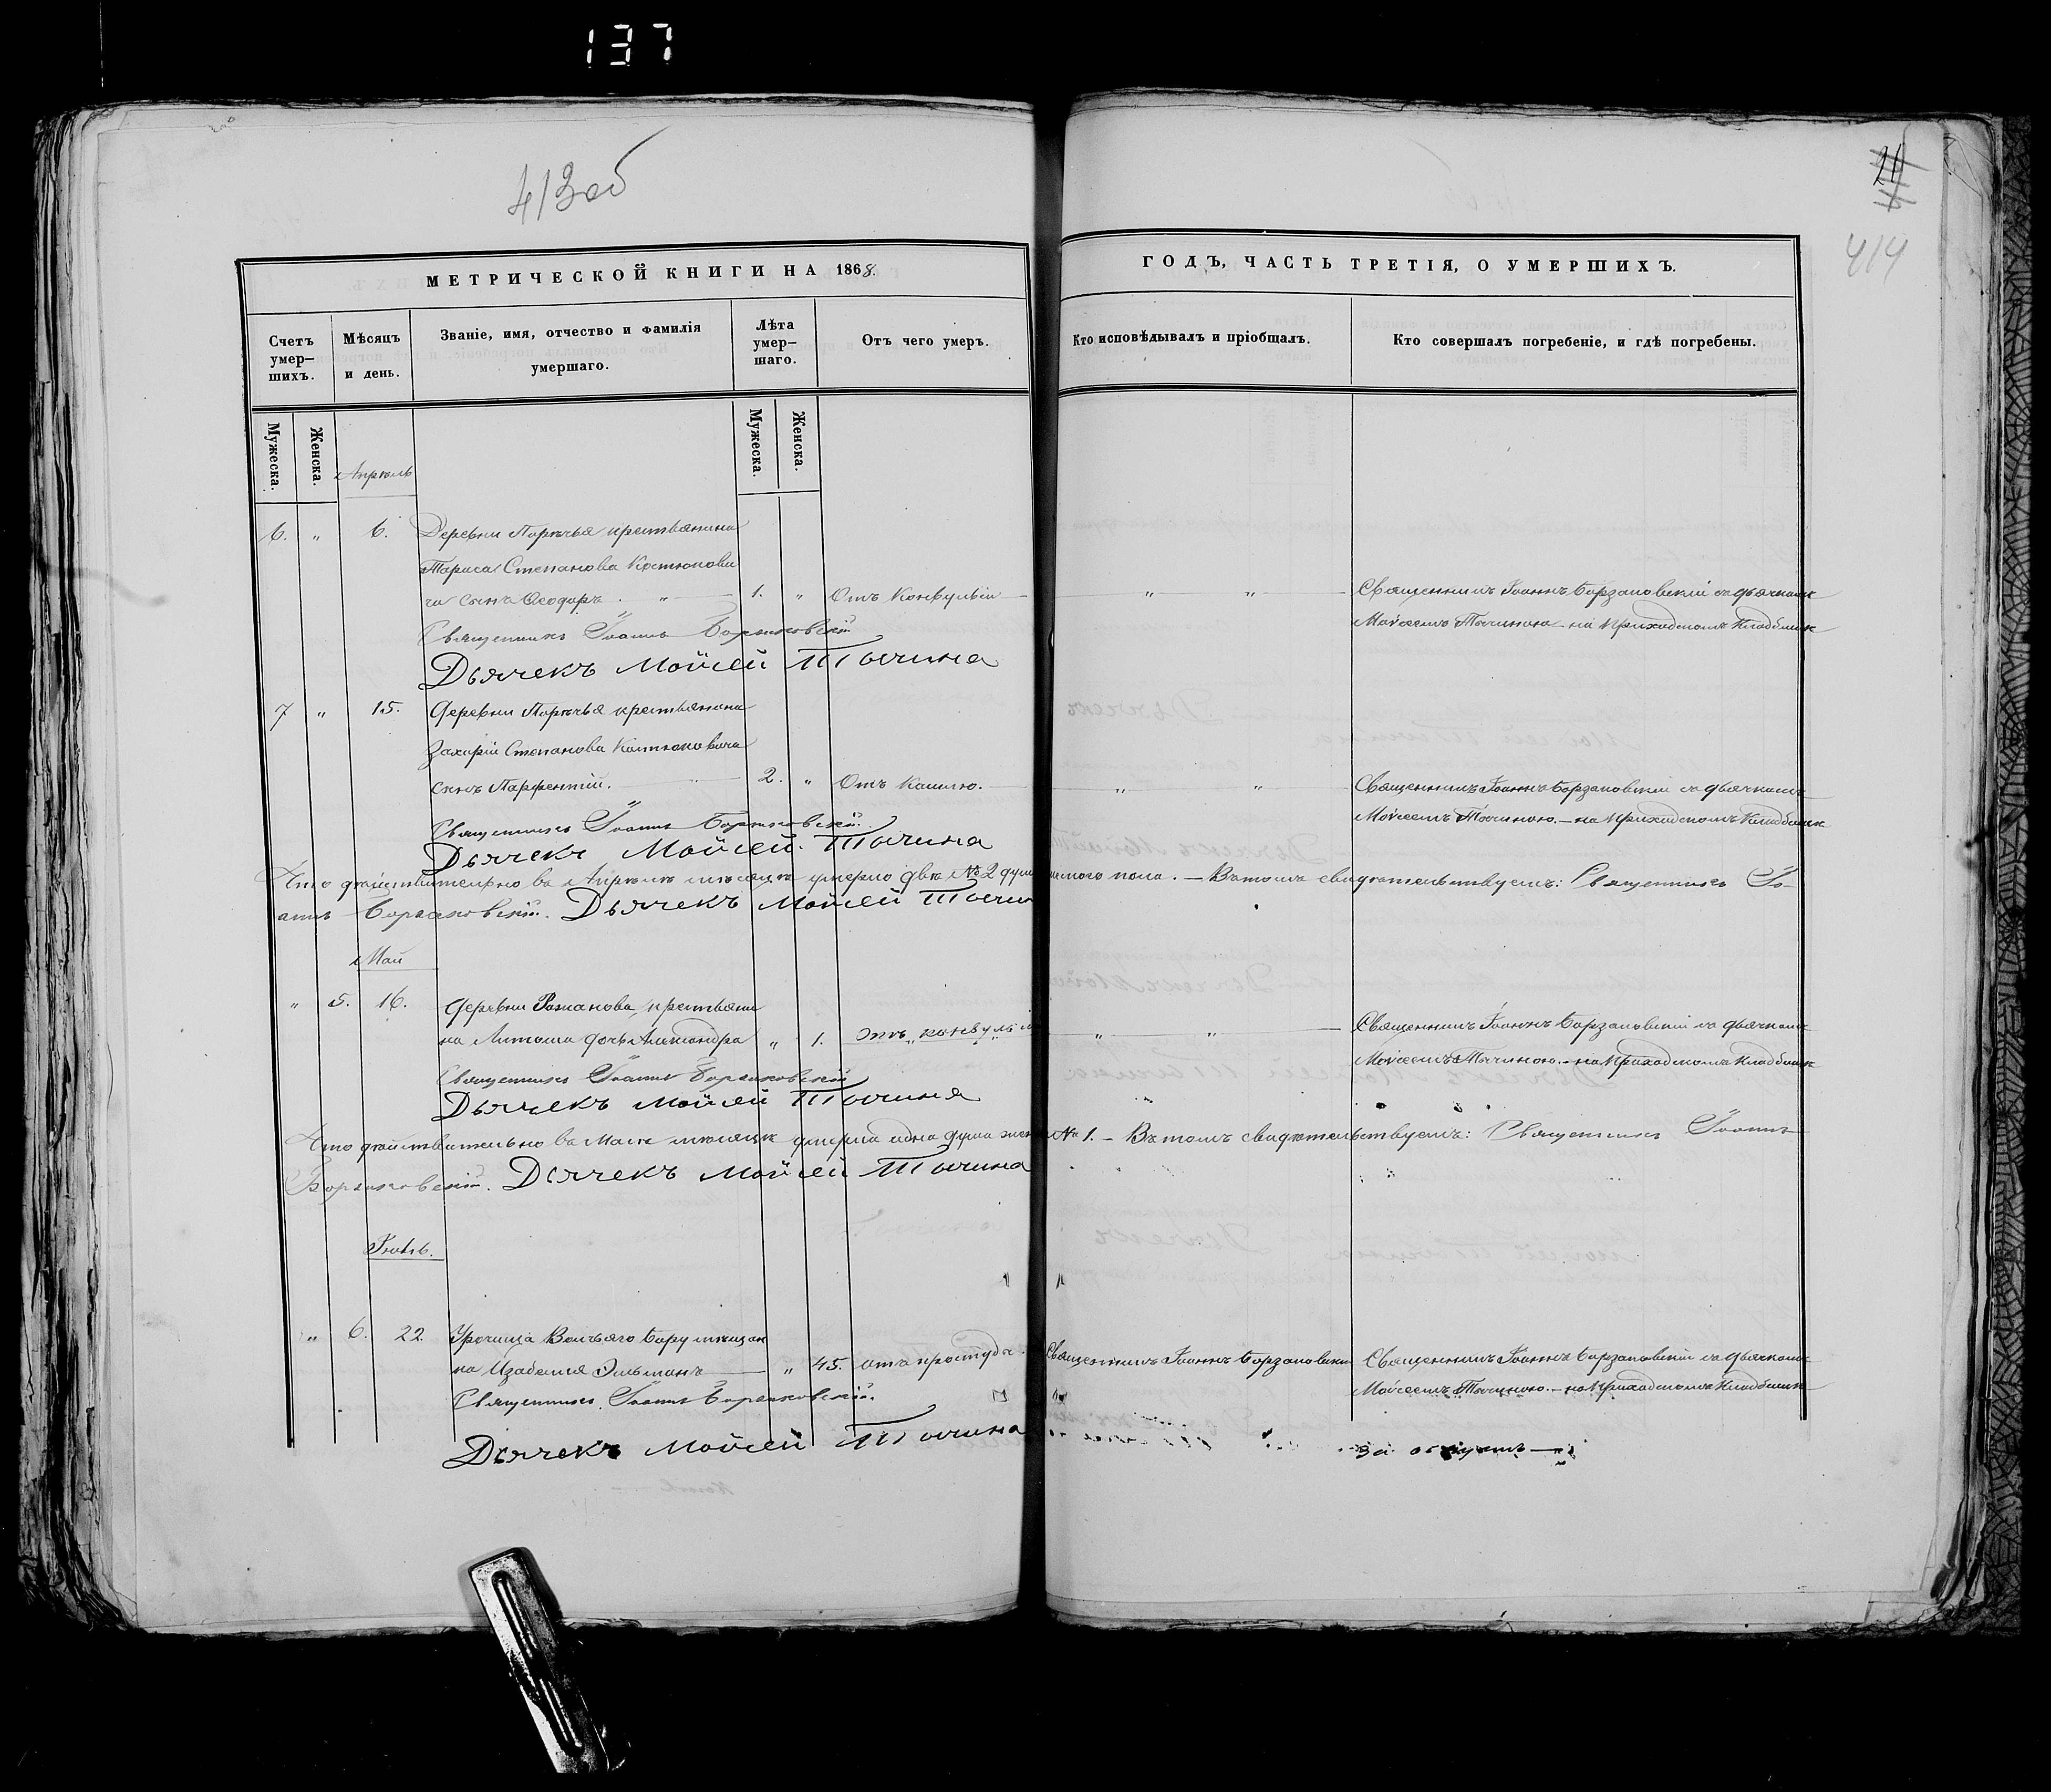 137
413об
21
414
МЕТРИЧЕСКОЙ КНИГИ НА 1868.
ГОДЪ, ЧАСТЬ ТРЕТІЯ, О УМЕРШИХЪ.
Счетъ умер-шихъ.
Мѣсяцъ и день.
Званіе, имя, отчество и фамилія умершаго.
Лѣта умер-шаго.
Отъ чего умеръ.
Кто исповѣдывалъ и пріобщалъ.
Кто совершалъ погребеніе, и гдѣ погребены.
Мужеска.
Женска.
Мужеска.
Женска.
Апрѣль
6. " 6. Деревни Порѣчья крестьянина
Тараса Степанова Костюкови
ча сынъ Ѳеодоръ. " 1. " Отъ Конвульсіи " " Священникъ Іоаннъ Борзаковскій съ дьячкомъ
Священникъ Іоаннъ Борзаковскій
Моѵсеемъ Тычиною - на приходскомъ кладбищѣ
Дьячекъ Мойсей Тычина
7 " 15. Деревни Порѣчья крестьянина
Захарія Степанова Костюковича
сынъ Парфентій. " 2. " Отъ Кашлю. " " Священникъ Іоаннъ Борзаковскій съ дьячкомъ
Священникъ Іоаннъ Борзаковскій.
Моѵсеемъ Тычиною. - на приходскомъ кладбищѣ
Дьячекъ Мойсей Тычина
Что дѣйствительно въ Апрѣлѣ мѣсяцѣ умерло двѣ № 2 душ мужескаго пола. - Въ томъ свидѣтельствуемъ: Священникъ Іо-
аннъ Борзаковскій. Дьячекъ Мойсей Тычина
Май
" 5. 16. Деревни Романова крестьяни
на дочь Александра " 1. отъ конвульсіи " " Священникъ Іоаннъ Борзаковскій съ дьячкомъ
Священникъ Іоаннъ Борзаковскій
Моѵсеемъ Тычиною. - на приходскомъ кладбищѣ
Дьячекъ Мойсей Тычина
Что дѣйствительно въ Маѣ мѣсяцѣ умерла одна душа жен № 1. - Въ томъ свидѣтельствуемъ: Священникъ Іоаннъ
Борзаковскій. Дьячекъ Мойсей Тычина
Іюль.
" 6. 22. Урочища Волчьяго Бору мѣщан
ка Изабелія " 45. отъ простуды. Священникъ Іоаннъ Борзаковскій Священникъ Іоаннъ Борзаковскій съ дьячкомъ
Священникъ Іоаннъ Борзаковскій.
Моѵсеемъ Тычиною. - на приходскомъ кладбищѣ
Дьячекъ Мойсей Тычина